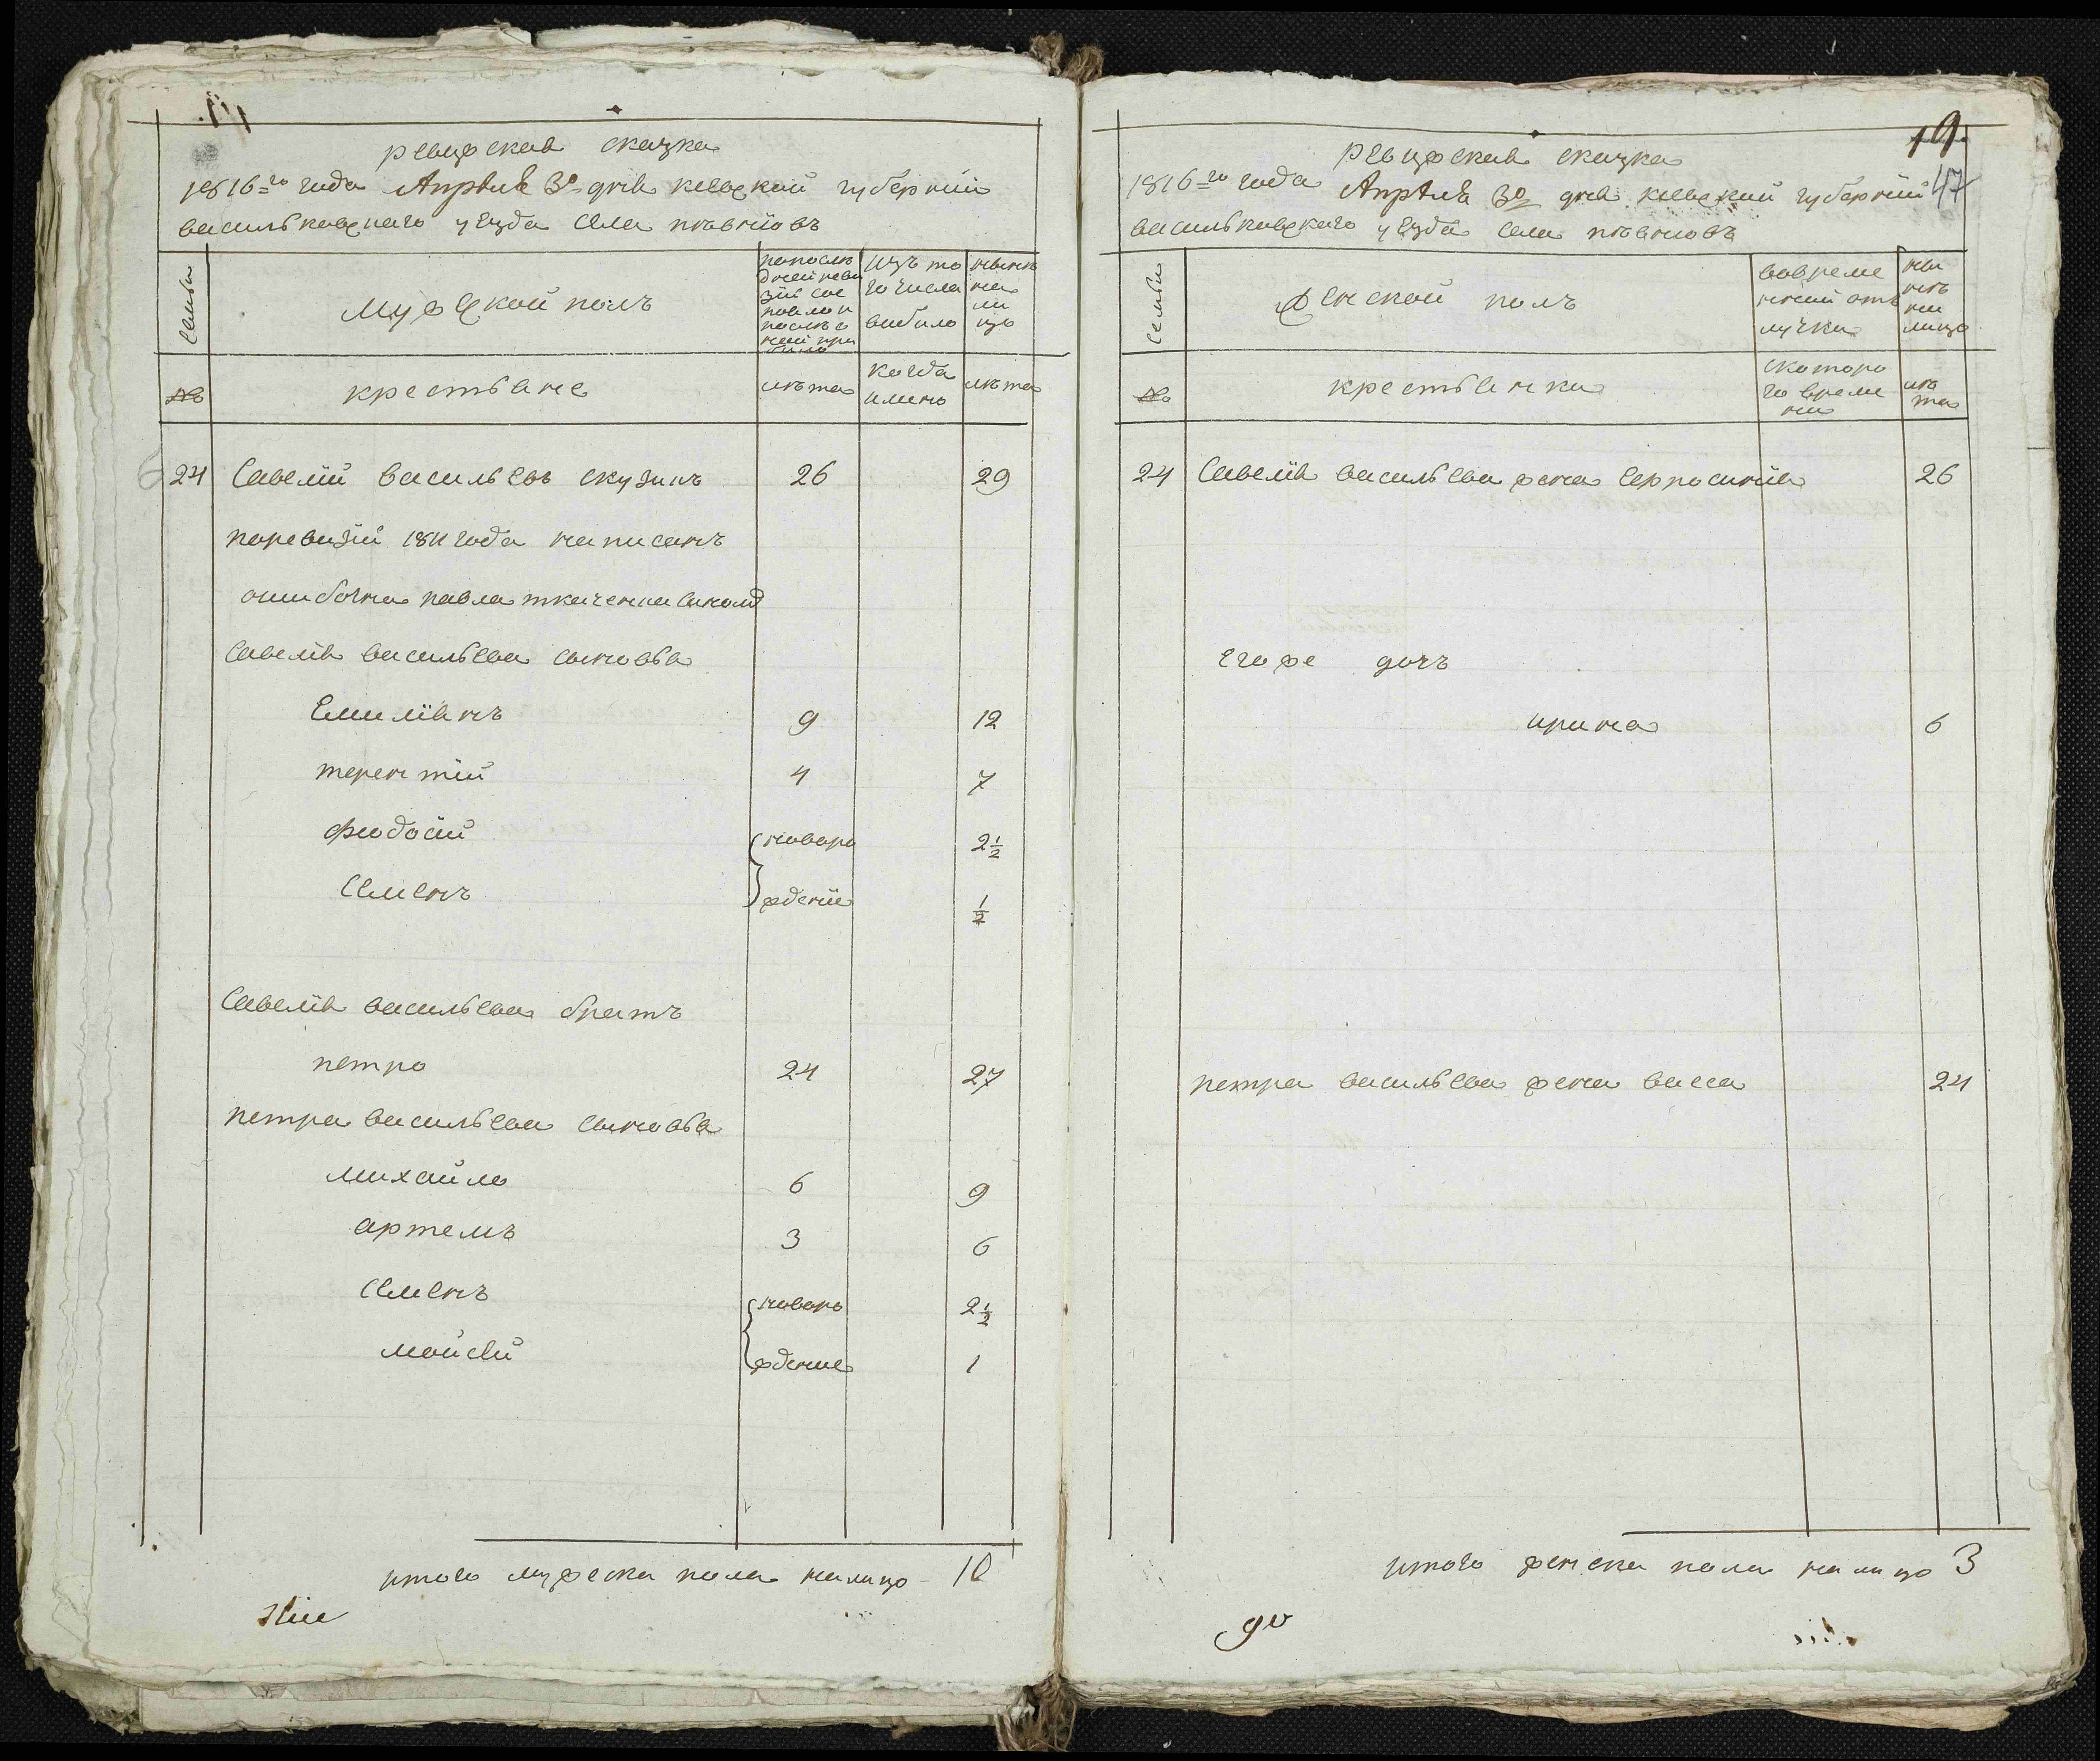 ревизская сказка
1816=го года Апреля 30 дня киевской губернии
васильковского уезда села пѣвнiовъ
семьи
мужеской полъ
попослѣ
дней реви
зiи сос
тояло и
послѣ о
ной при
было
изъ то
го числа
выбило
нынѣ
на
ли
цо
№
крестьяне
лѣта
когда
имено
лѣта
24 Савелiй васильевъ скузикъ 26 29
поревизiи 1811 года написанъ
ошибочна павла ткаченка сыномъ
Савелiя васильева сыновья
Емилiянъ 9 12
терентiй 4 7
феодосiй новоро 2 1/2
Семенъ жденiе 1/2
Савелiя васильева братъ
петро 24 27
петра васильева сыновья
михайло 6 9
артемъ 3 6
Семенъ новоро 2 1/2
мойсей жденiе 1
итого мужеска пола налицо - 10
19.
47
ревизская сказка
1816=го года Апрѣля 30 дня киевской губернiи
васильковского уезда села пѣвновъ
семьи
Женской полъ
вовреме
нной отъ
лучки
ны
нѣ
на
лицо
№
крестьянка
скоторо
го време
ни
лѣ
та
24 Савелiя васильева жена Евросинiя 26
Егоже дочь
ирина 6
петра васильева жена васса 24
итого женска пола налицо 3